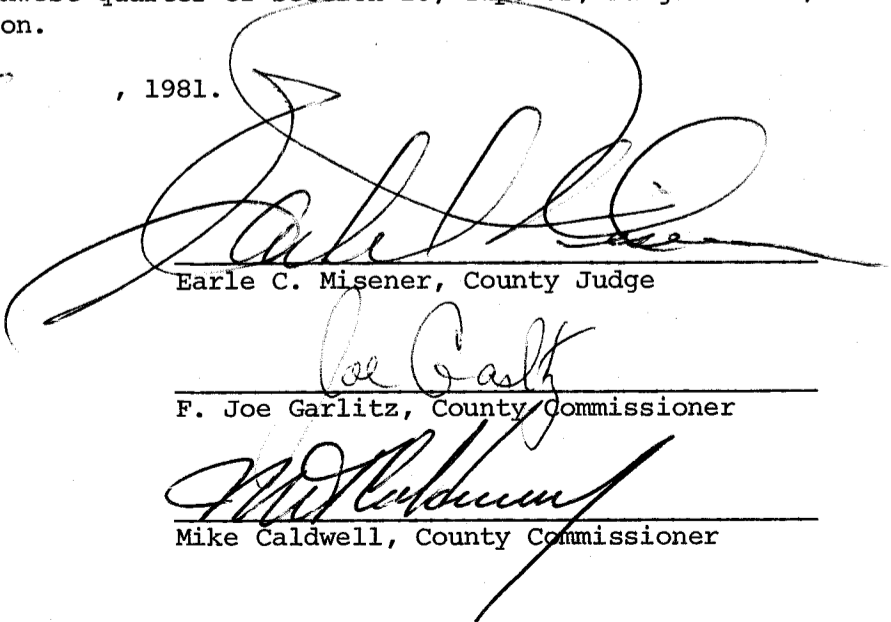 quarter of
on.
, 1981.
Earle C. Misener
Earle C. Misener, County Judge
Joe Garlitz
F. Joe Garlitz, County Commissioner
Mike Caldwell, County Commissioner